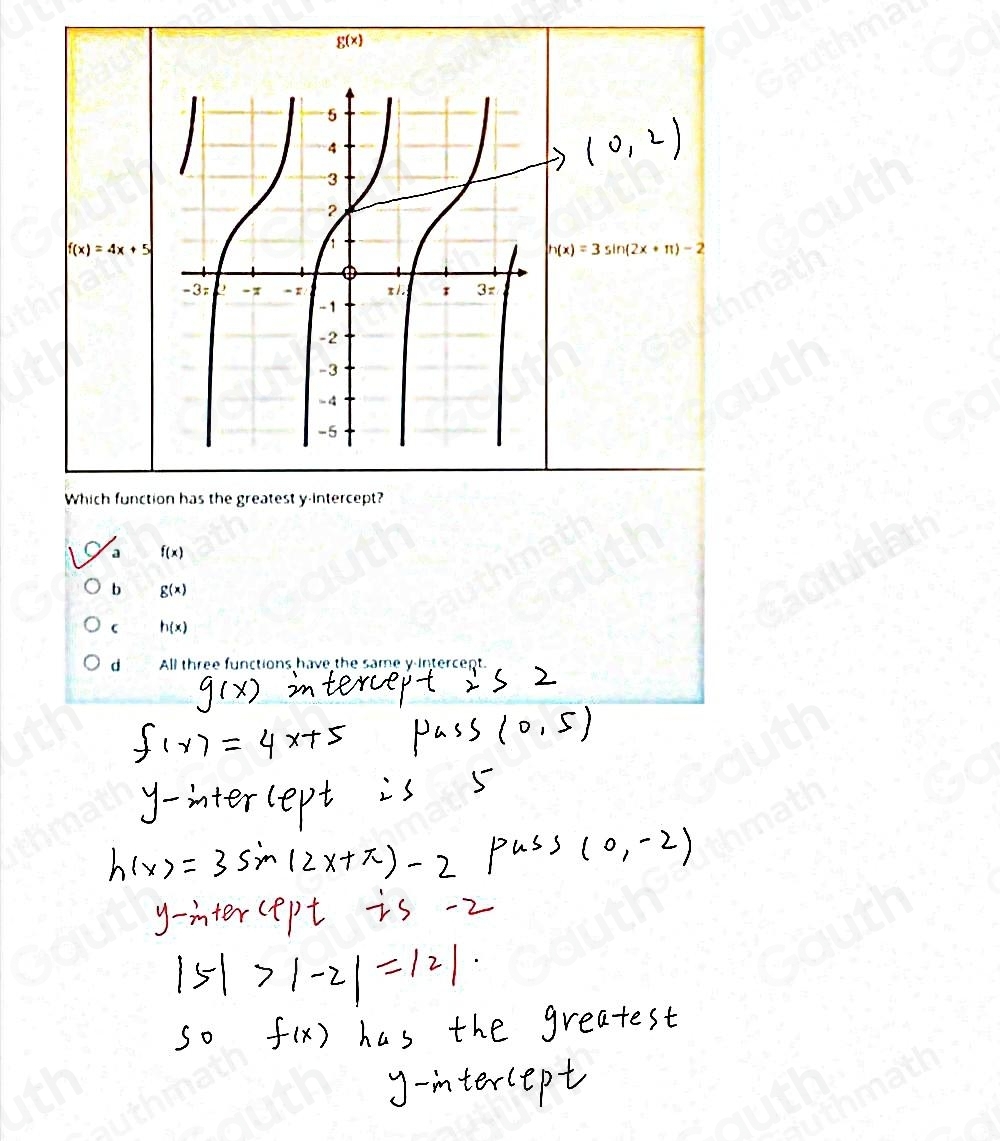 g(x)
5
4
3
2
1
-3π/2 -π -π/2 π/2 π 3π/2
-1
-2
-3
-4
-5
(0,2)
f(x) = 4x + 5
h(x) = 3 sin(2x + π) - 2
Which function has the greatest y-intercept?
a f(x)
b g(x)
c h(x)
d All three functions have the same y-intercept.
g(x) intercept is 2
f(x) = 4x+5 pass (0,5)
y-intercept is 5
h(x) = 3 sin(2x+π)-2 pass (0,-2)
y-intercept is -2
|5| > |-2| = |2|.
so f(x) has the greatest
y-intercept
Gauthmath